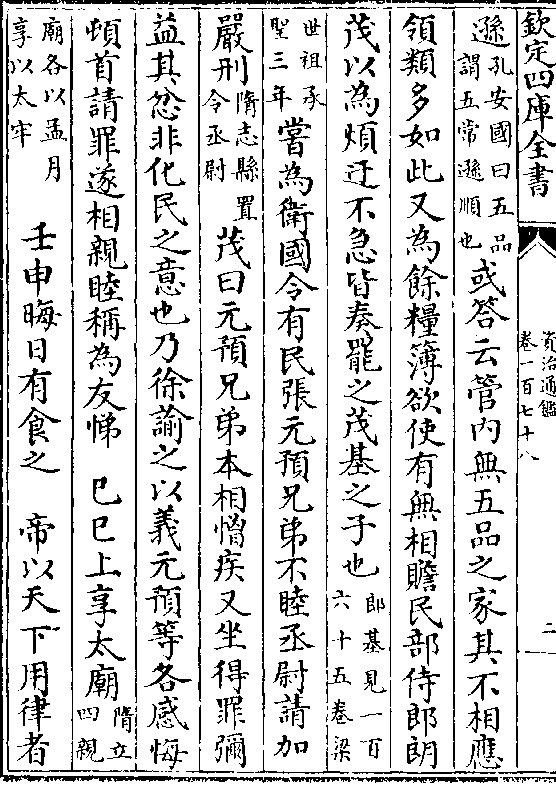 欽定四庫全書
資治通鑑
卷一百七十八
二
遜孔安國曰五品謂五常遜順也或答云管内無五品之家其不相應
領類多如此又為餘糧簿欲使有無相贍民部侍郎朗
茂以為煩迂不急皆奏罷之茂基之子也郎基見一百六十五卷梁
世祖承聖三年嘗為衛國令有民張元預兄弟不睦丞尉請加
嚴刑隋志縣置令丞尉茂曰元預兄弟本相憎疾又坐得罪彌
益其忿非化民之意也乃徐諭之以義元預等各感悔
頓首請罪遂相親睦稱為友悌　巳巳上享太廟隋立四親
廟各以孟月享以太牢　壬申晦日有食之　帝以天下用律者